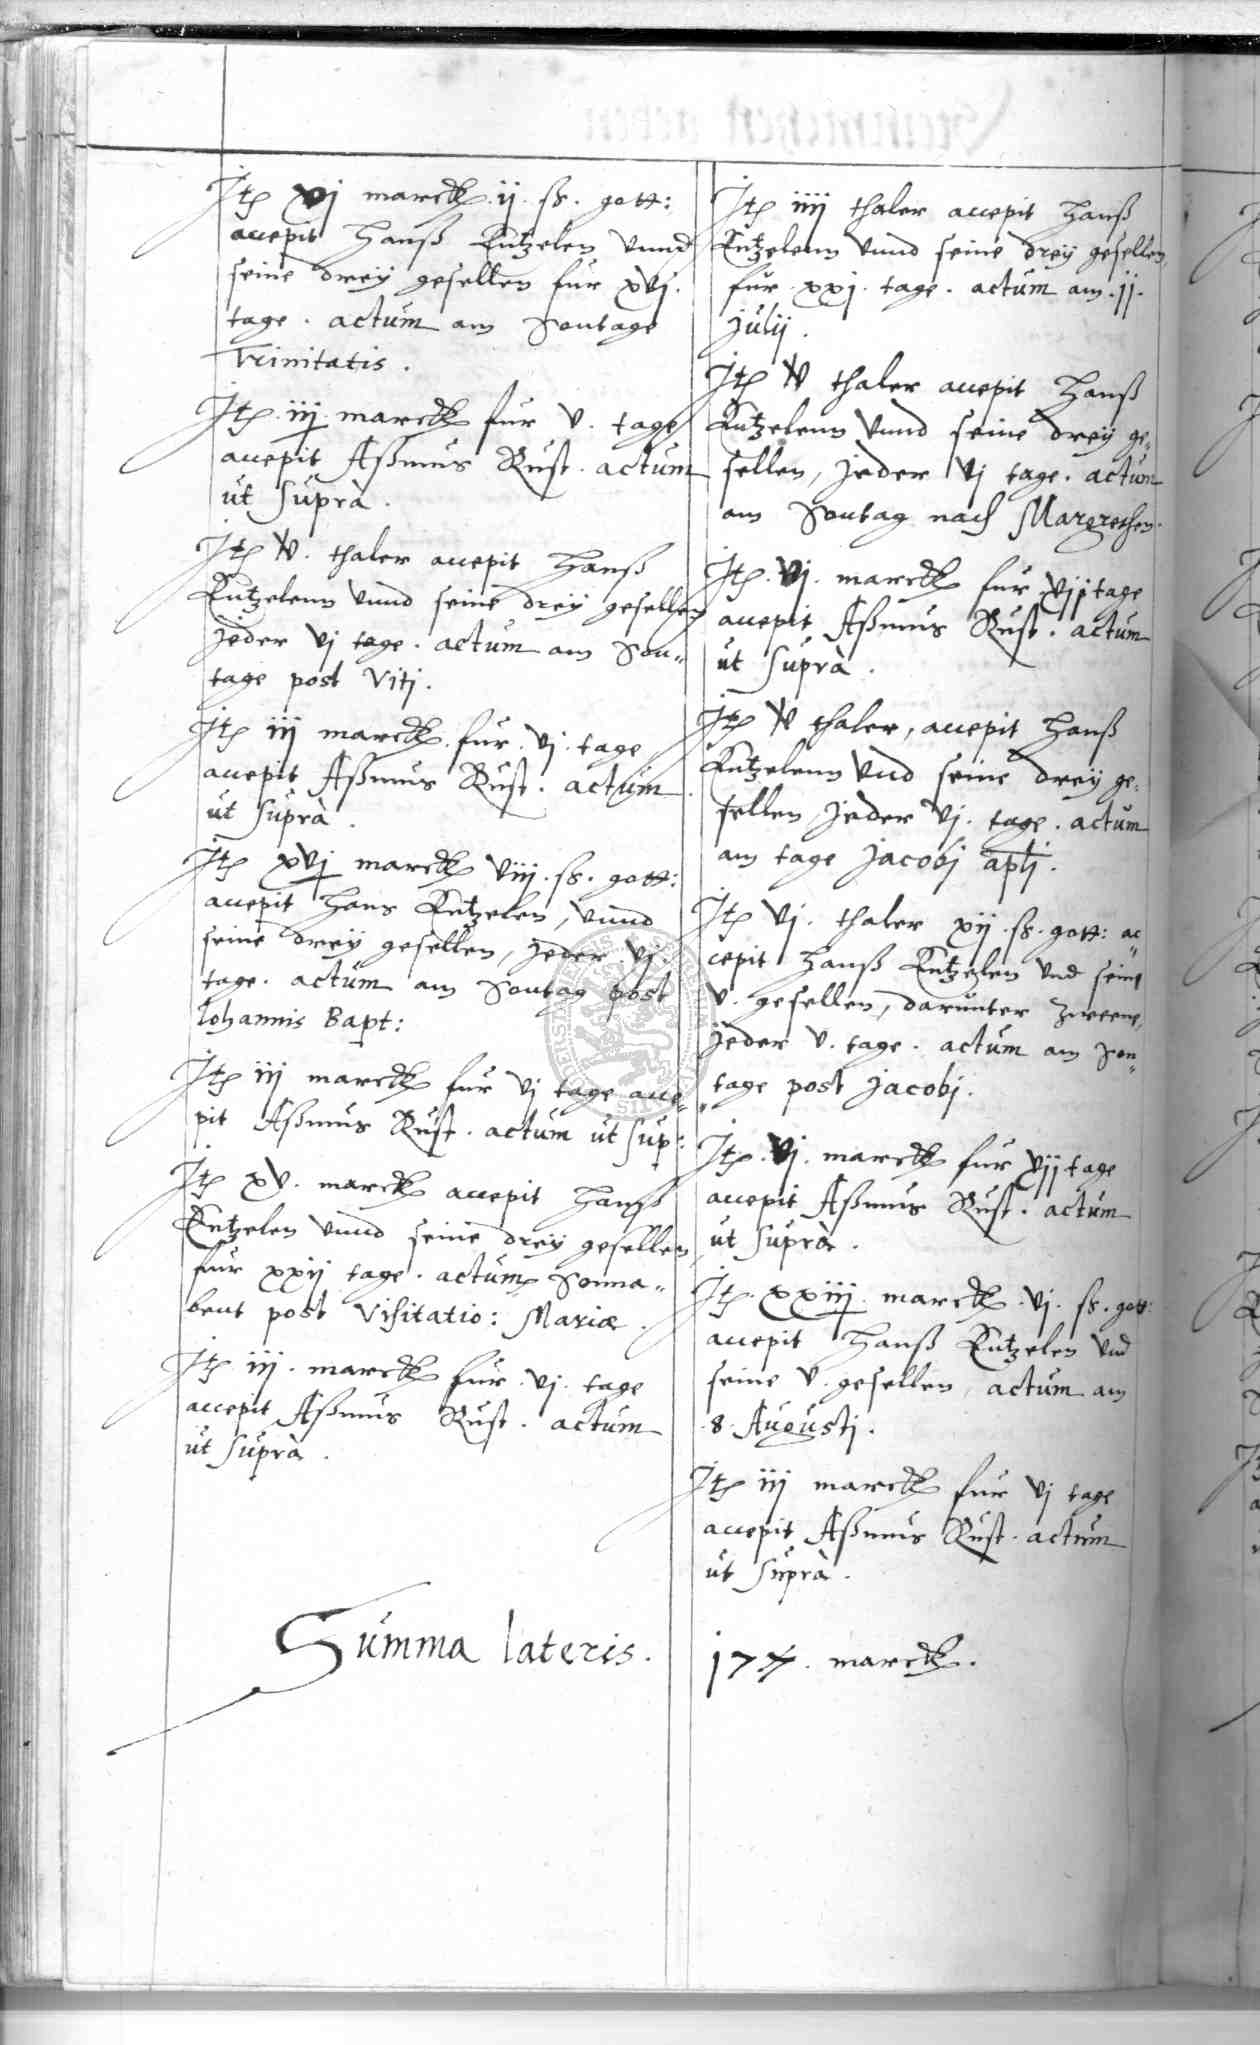 Jtem xvj marck ij ß. gott:
accepit Hanß Kutzelen vnnd
seine drey gesellen fur xvj.
tage. actum am Sontage
Trinitatis.
Jtem iij marck fur v. tage
accepit Aßmus Rust. actum
ut suprà.
Jtem v. thaler accepit Hanß
Kutzelenn vnnd seine drey gesellen
jeder vj tage. actum am Son„
tage post Viti.
Jtem iij marck fur vj. tage
accepit Aßmus Rust. actum
ut suprà.
Jtem xvj marck viij. ß. gott:
accepit Hans Kutzelen, vnnd
seine drey gesellen, jeder vj.
tage. actum am Sontag post
Iohannis Bapt:
Jtem iij marck fur vj tage acce„
pit Aßmus Rust. actum ut sup:
Jtem xv. marck accepit Hanß
Kutzelen vnnd seine drey gesellen,
fur xxij tage. actum Sonna„
bent post Visitatio: Mariæ.
Jtem iij. marck fur vj. tage
accepit Aßmus Rust. actum
ut suprà.
Summa lateris.
Jtem iiij thaler accepit Hanß
Kutzelenn vnnd seine drey gesellen,
fur xxj. tage. actum am .jj.
julij.
Jtem v thaler accepit Hanß
Kutzelenn vnnd seine drey ge„
sellen, jeder vj tage. actum
am Sontag nach Margrethen.
Jtem. vj. marck fur vjj tage
accepit Aßmus Rust. actum
ut suprà.
Jtem v thaler, accepit Hanß
Kutzelenn vnd seine drey ge„
sellen, jeder vj. tage. actum
am tage jacobj aptj.
Jtem vj. thaler xij. ß. gott: ac
cepit Hanß Kutzelen vnd seine
v. gesellen, darunter zweene,
jeder v. tage. actum am Son„
„tage post jacobj.
Jtem. vj. marck fur vjj tage
accepit Aßmus Rust. actum
ut suprà.
Jtem. xxiij. marck. vj. ß. gott:
accepit Hanß Kutzelen vnd
seine v. gesellen, actum am
.8. Augustj.
Jtem iij marck fur vj tage
accepit Aßmus Rust. actum
ut suprà.
marck.